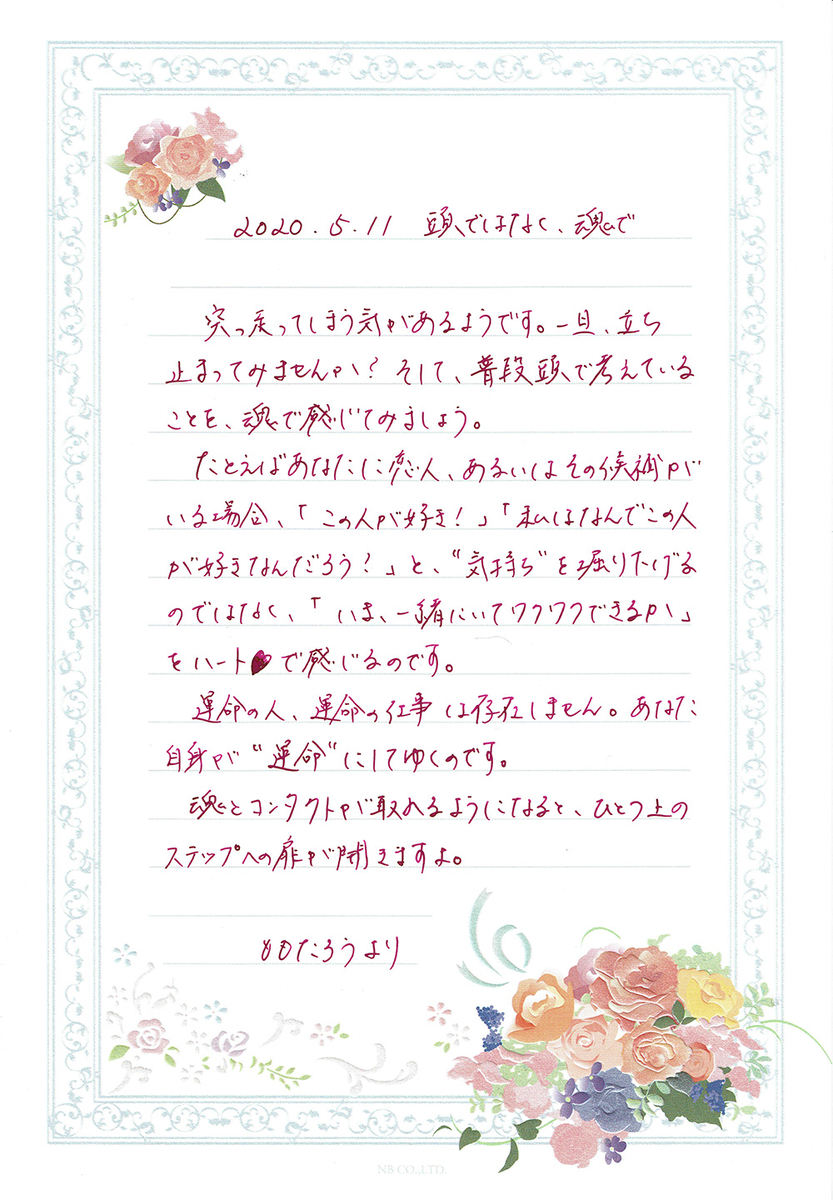 2020.5.11 頭ではなく、魂で
突っ走ってしまう気があるようです。一旦、立ち
止まってみませんか？そして、普段頭で考えている
ことを、魂で感じてみましょう。
たとえばあなたに恋人、あるいはその候補が
いる場合、「この人が好き！」「私はなんでこの人
が好きなんだろう？」と、“気持ち”を掘り下げる
のではなく、「いま、一緒にいてワクワクできるか」
をハート♥で感じるのです。
運命の人、運命の仕事は存在しません。あなた
自身が“運命”にしてゆくのです。
魂とコンタクトが取れるようになると、ひとつ上の
ステップへの扉が開きますよ。
ももたろうより
NB CO.,LTD.